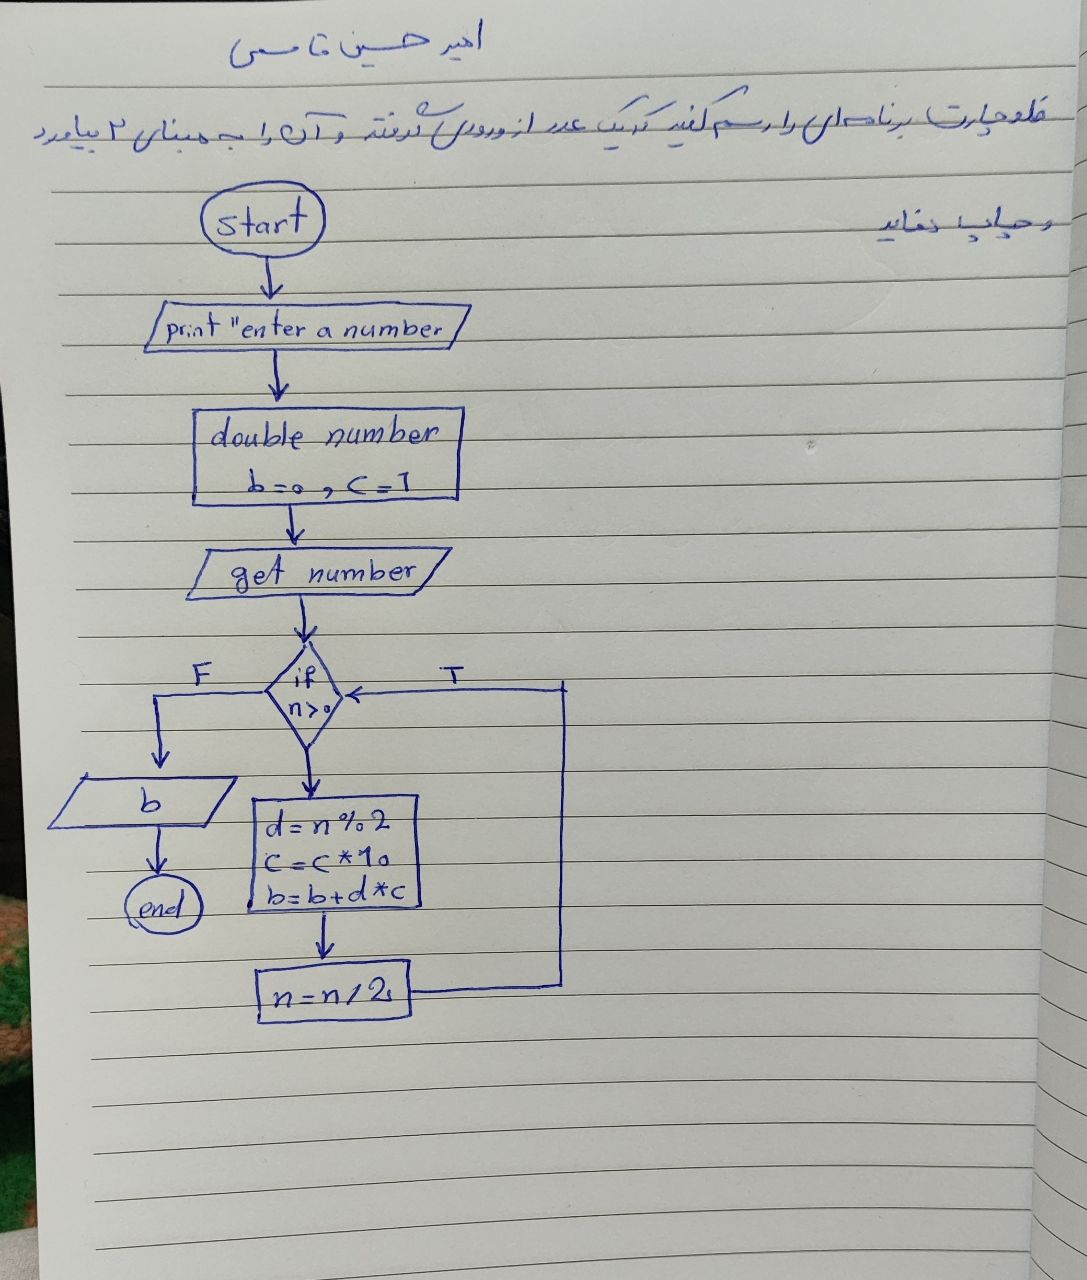 امیر حسین قاسمی
فلوچارت برنامه‌ای را رسم کنید که یک عدد از ورودی گرفته و آن را به مبنای ۲ بیاورد
و چاپ نماید
start
print "enter a number
double number
b=0 , c=1
get number
F
if
n>0
T
b
end
d=n%2
c=c*10
b=b+d*c
n=n/2